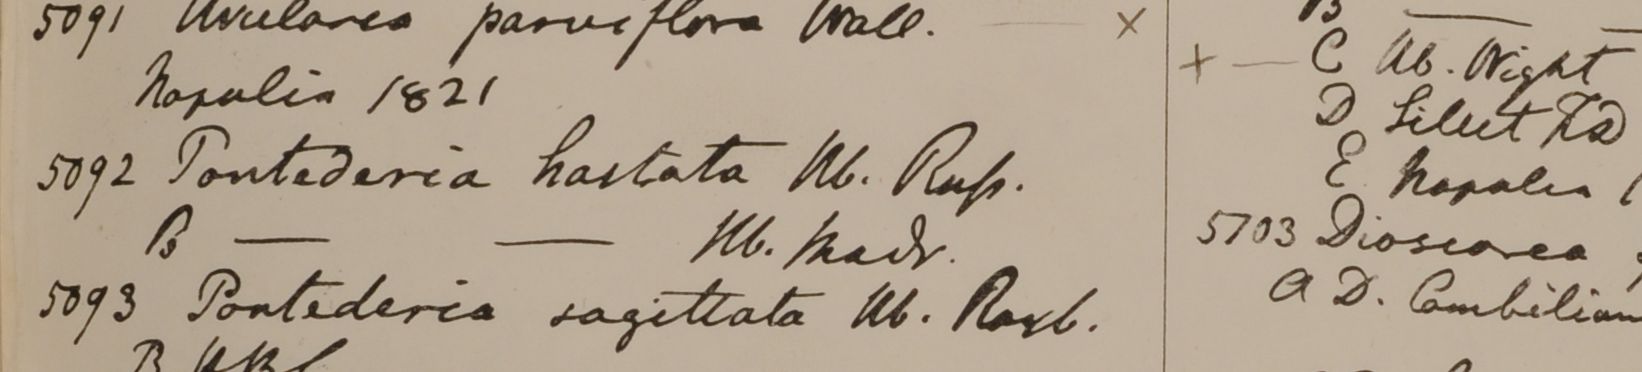 5091 Uvularea parviflora Wall. × 
Napalia 1821
5092 Pontederia hastata Hb. Russ.
B — — Hb. Madr.
5093 Pontederia sagittata Hb. Roxb.
B HBC
B —
× — C Hb. Wight
D Silhet FD
E Napalia
5703 Dioscorea
a D. Combilium